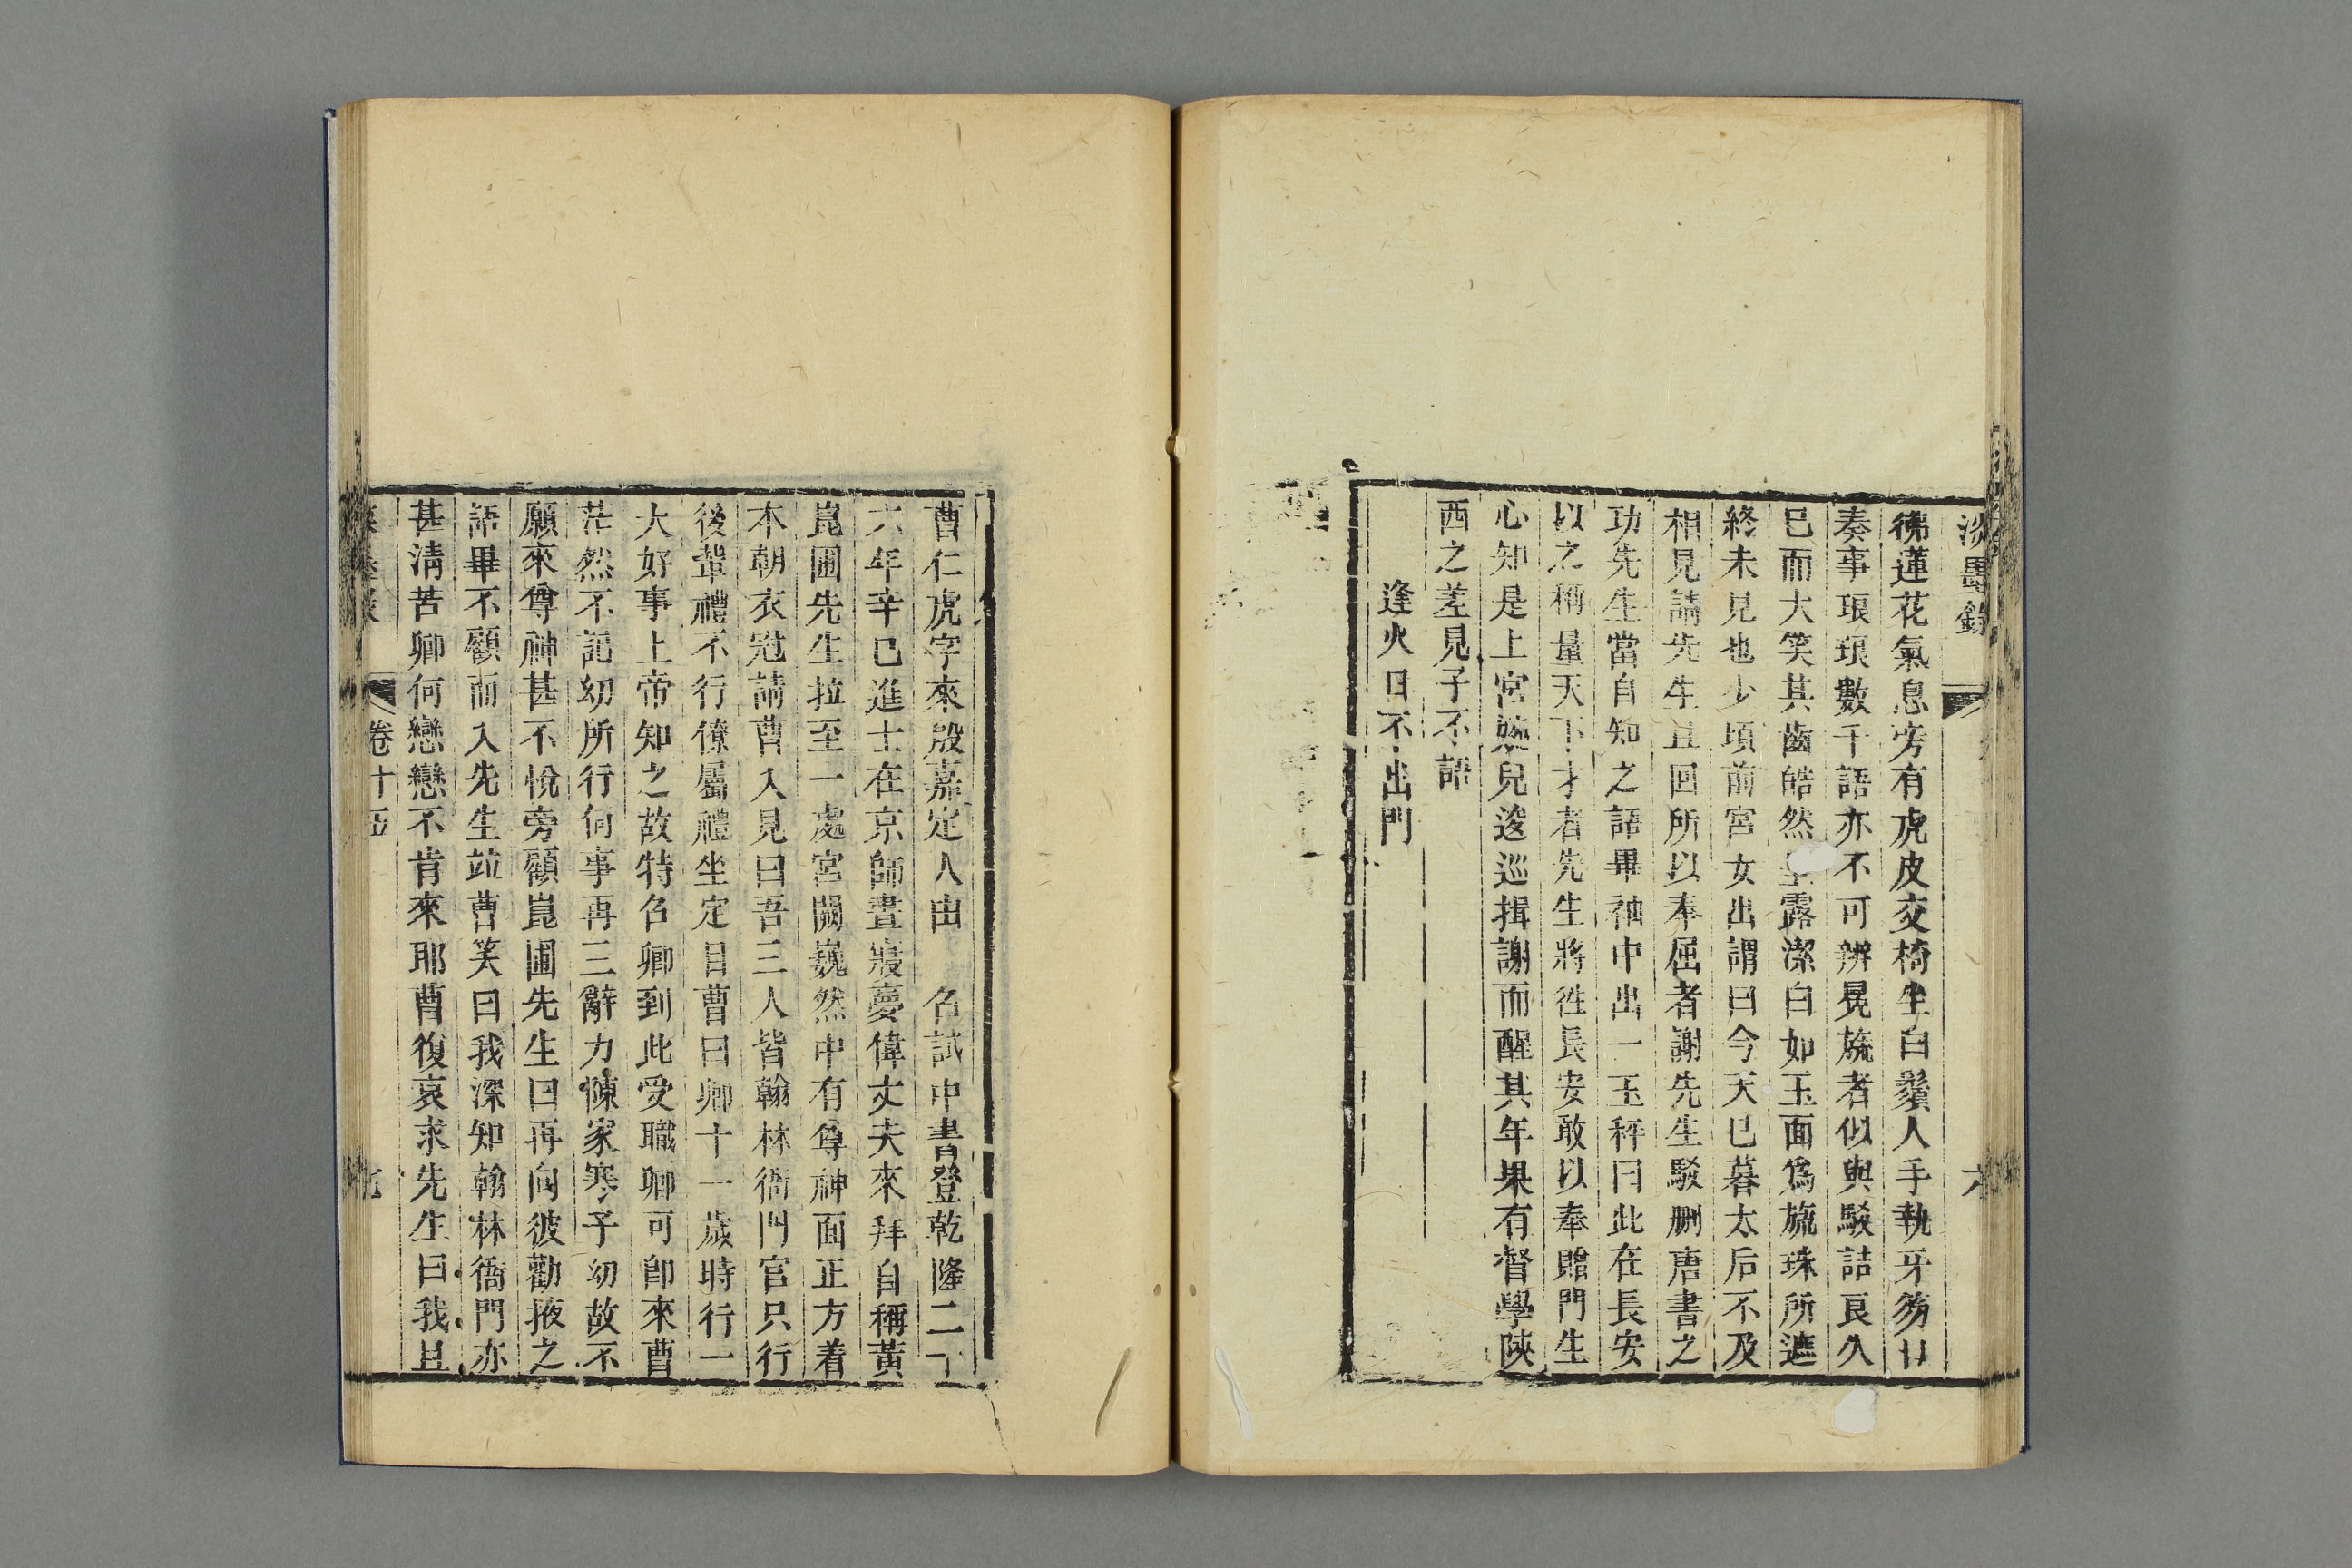 淡墨錄
六
彿蓮花氣息旁有虎皮交椅坐白鬚人手執牙笏
奏事琅琅數千語亦不可辨冕旒者似與駁詰良久
已而大笑其齒皓然露潔白如玉面爲旒珠所遮
終未見也少頃前宮女出謂曰今天已暮太后不及
相見請先生且回所以奉屈者謝先生駁删唐書之
功先生當自知之語畢袖中出一玉秤曰此在長安
以之稱量天下才者先生將徃長安敢以奉贈門生
心知是上官婉兒逡巡揖謝而醒其年果有督學陝
西之差見子不語
逢火日不出門
曹仁虎字來殷嘉定人由 召試中書登乾隆二十
六年辛巳進士在京師晝寢夢偉丈夫來拜自稱黃
崑圃先生拉至一處宮闕巍然中有尊神面正方着
本朝衣冠請曹入見曰吾三人皆翰林衙門官只行
後輩禮不行僚屬禮坐定目曹曰卿十一歲時行一
大好事上帝知之故特召卿到此受職卿可卽來曹
茫然不記幼所行何事再三辭力愫家寒子幼故不
願來尊神甚不悅旁顧崑圃先生曰再向彼勸掖之
語畢不顧而入先生竝曹笑曰我深知翰林衙門亦
甚清苦卿何戀戀不肯來耶曹復哀求先生曰我且
卷十五
七